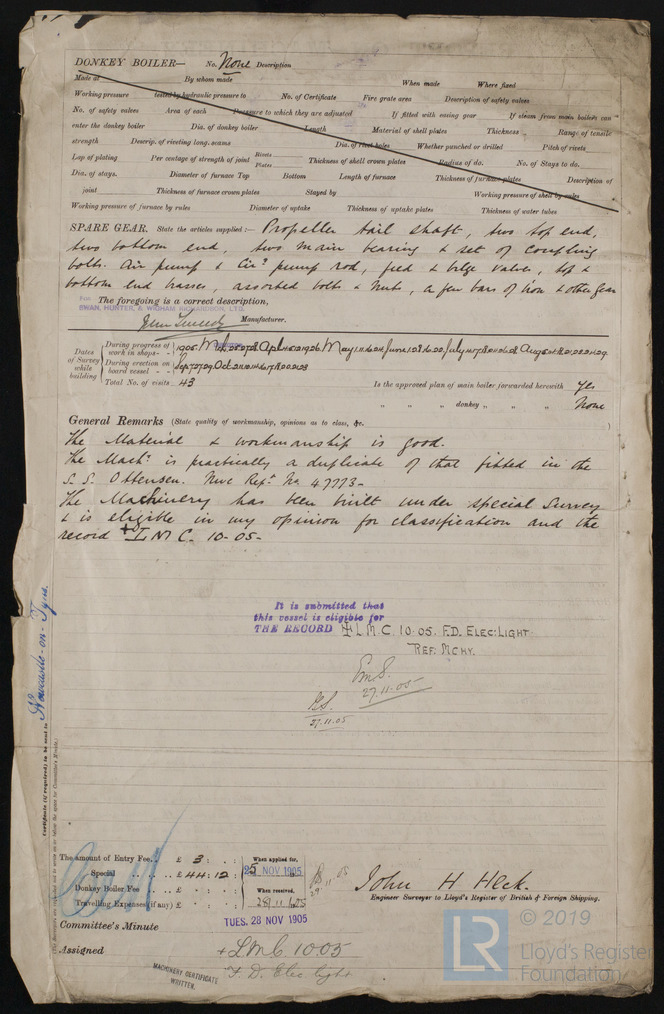 DONKEY BOILER— No. None Description
Made at By whom made When made Where fixed
Working pressure tested by hydraulic pressure to No. of Certificate Fire grate area Description of safety valves
No. of safety valves Area of each Pressure to which they are adjusted If fitted with easing gear If steam from main boilers can
enter the donkey boiler Dia. of donkey boiler Length Material of shell plates Thickness Range of tensile
strength Descrip. of riveting long. seams Dia. of rivet holes Whether punched or drilled Pitch of rivets
Lap of plating Per centage of strength of joint Rivets Plates Thickness of shell crown plates Radius of do. No. of Stays to do.
Dia. of stays. Diameter of furnace Top Bottom Length of furnace Thickness of furnace plates Description of
joint Thickness of furnace crown plates Stayed by Working pressure of shell by rules
Working pressure of furnace by rules Diameter of uptake Thickness of uptake plates Thickness of water tubes
SPARE GEAR. State the articles supplied:— Propeller tail shaft, two top end,
two bottom end, two main bearing & set of coupling
bolts. Air pump & Cir? pump rod, feed & bilge valves, top &
bottom end brasses, assorted bolts & nuts, a few bars of iron & other gear
The foregoing is a correct description,
For SWAN, HUNTER, & WIGHAM RICHARDSON, LTD.
Manufacturer.
Dates of Survey while building
During progress of work in shops - - 1905.
During erection on board vessel - -
Total No. of visits 43
Is the approved plan of main boiler forwarded herewith Yes
" " " donkey " " " None
General Remarks (State quality of workmanship, opinions as to class, &c.
The Material & workmanship is good.
The Mach? is practically a duplicate of that fitted in the
S.S. Ottensen. Nwc Rept. No 47773-
The Machinery has been built under special Survey
& is eligible in my opinion for classification and the
record + L M C. 10-05-
It is submitted that
this vessel is eligible for
THE RECORD + L.M.C. 10.05. F.D. ELEC: LIGHT.
REF: MCHY.
27.11.05
27.11.05
Certificate (if required) to be sent to Newcastle-on-Tyne.
The amount of Entry Fee.. £ 3 : : When applied for,
Special .. £ 44 : 12 : 25 NOV 1905
Donkey Boiler Fee .. £ : : When received,
Travelling Expenses (if any) £ : : 28.11.05
29.11.05
John H. Heck.
Engineer Surveyor to Lloyd's Register of British & Foreign Shipping.
Committee's Minute TUES. 28 NOV 1905
Assigned + L.M.C. 10.05
F. D. Elec light
MACHINERY CERTIFICATE
WRITTEN.
LR © 2019
Lloyd's Register
Foundation